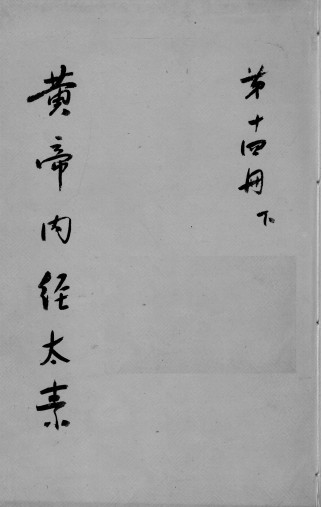 第十四冊下
黄帝内经太素